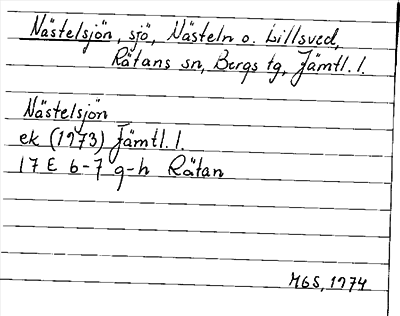 Nästelsjön, sjö, Nästeln o. Lillsved,
Rätans sn, Bergs tg, Jämtl. l.
Nästelsjön
ek (1973) Jämtl. l.
17 E 6-7 g-h Rätan
MGS, 1974